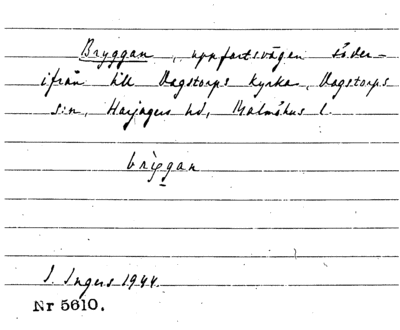 Bryggan, uppfartsvägen söder-
ifrån till Dagstorps kyrka, Dagstorps
s:n, Harjagers hd, Malmöhus l.
bryggan
I. Ingers 1944.
Nr 5610.